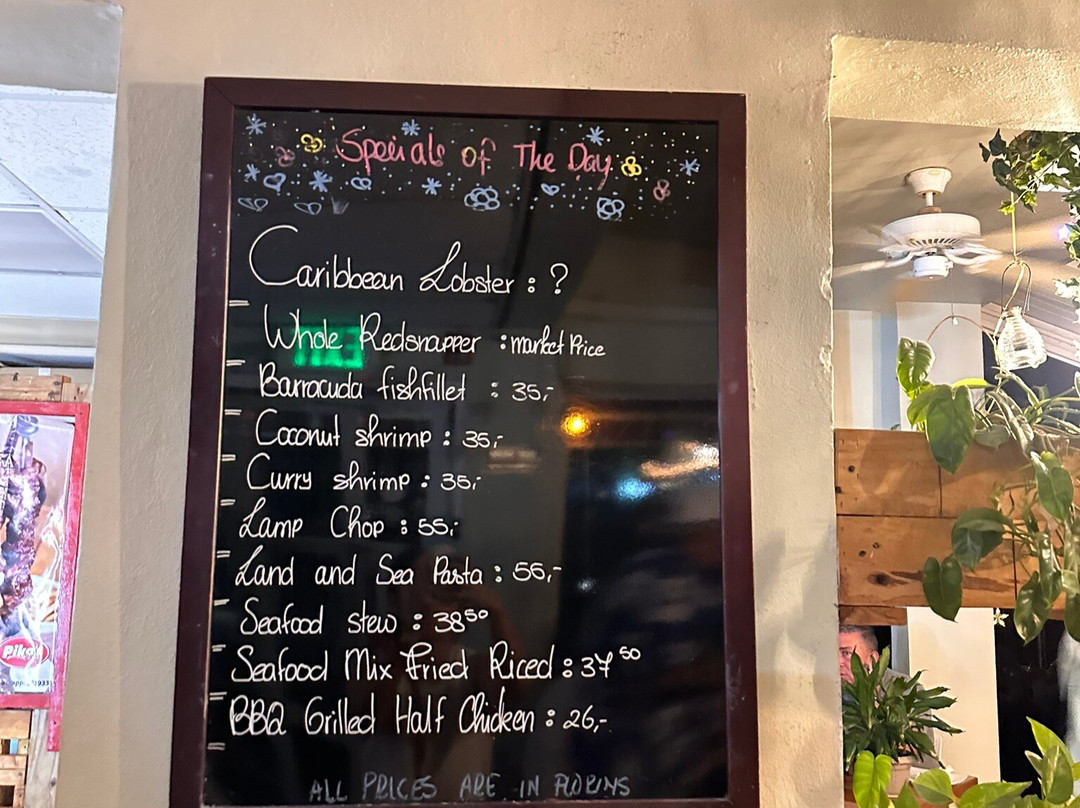 Specials of The Day
Caribbean Lobster : ?
Whole Redsnapper : market Price
Barracuda fishfillet : 35,-
Coconut shrimp : 35,-
Curry shrimp : 35,-
Lamp Chop : 55,-
Land and Sea Pasta : 55,-
Seafood stew : 38 50
Seafood Mix Fried Riced : 37 50
BBQ Grilled Half Chicken : 26,-
ALL PRICES ARE IN FLORINS